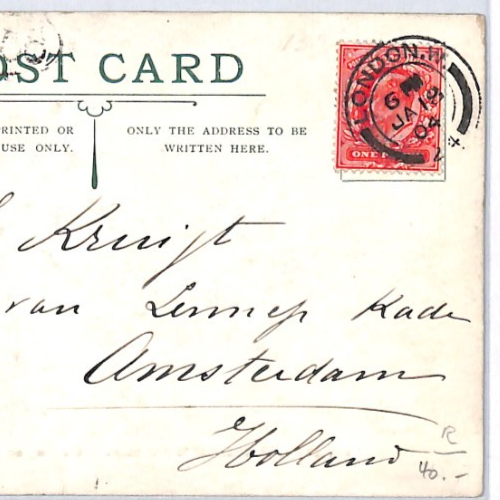 OST CARD
RINTED OR
USE ONLY.
ONLY THE ADDRESS TO BE
WRITTEN HERE.
LONDON.W
6 PM
JA 19
04
ONE P
Kruijt
van Lennep Kade
Amsterdam
Holland
R
40.-